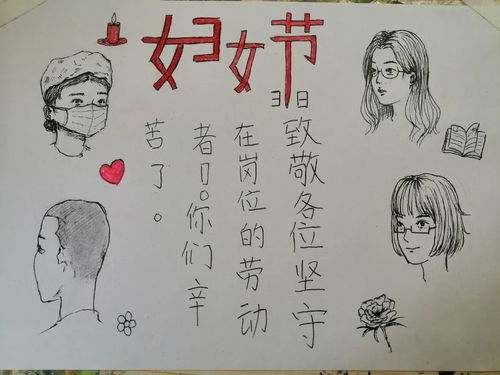 妇女节
38
致敬各位坚守
在岗位的劳动
者们。你们辛
苦了。